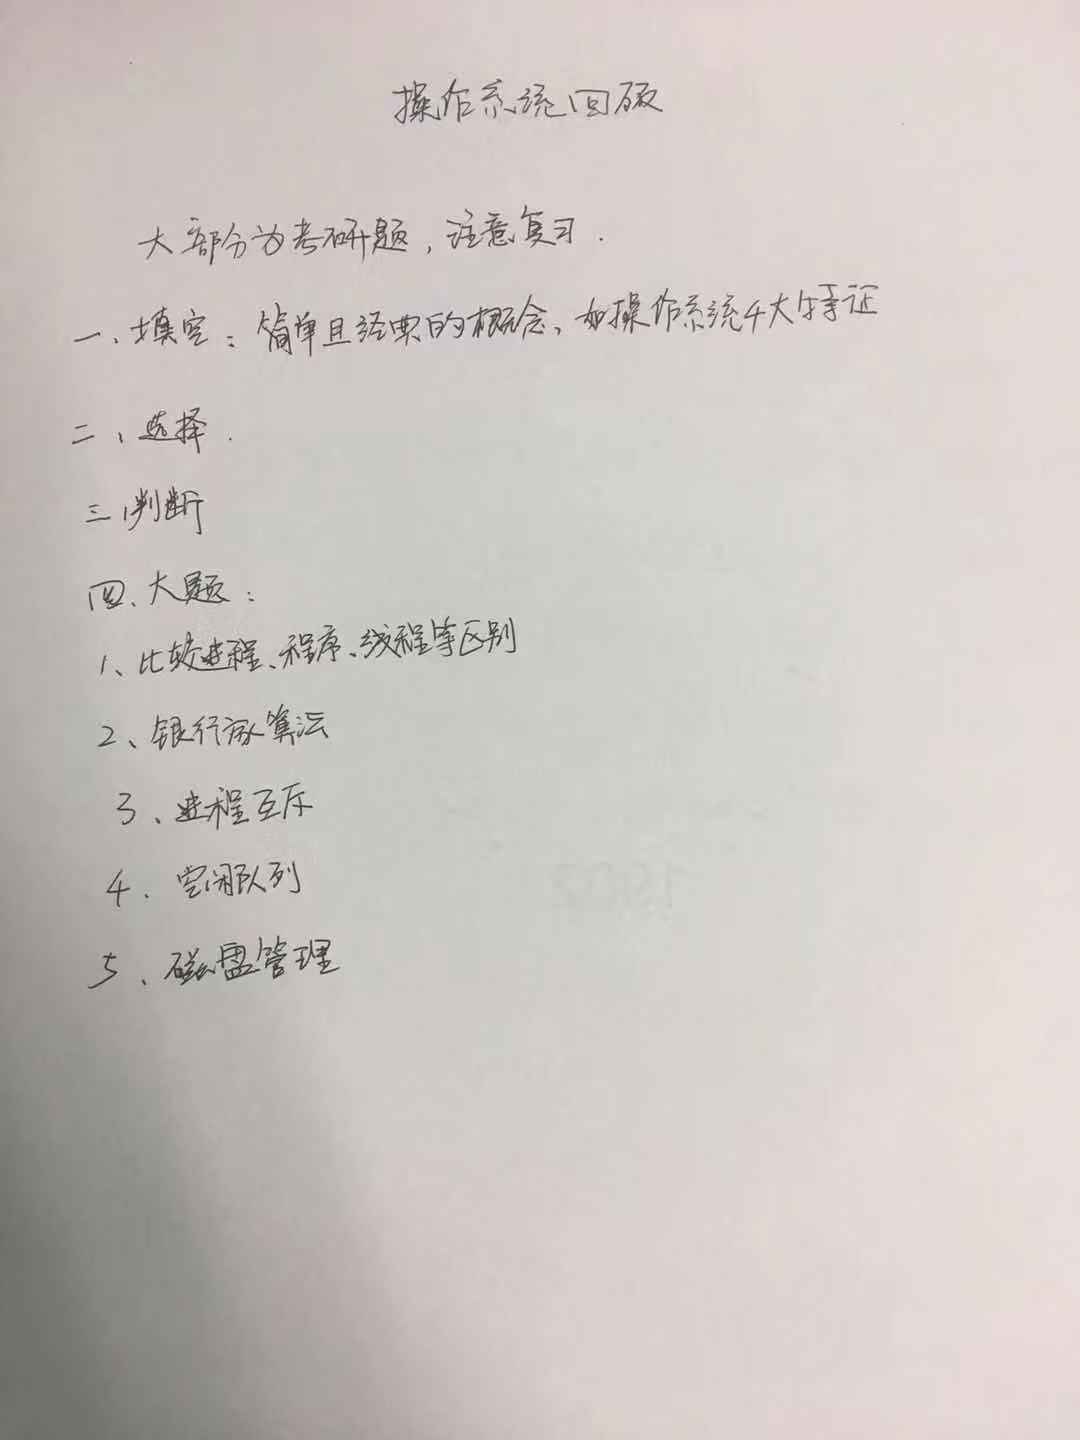 操作系统回顾
大部分为考研题，注意复习.
一、填空：简单且经典的概念、如操作系统4大特证
二、选择.
三、判断
四、大题：
1、比较进程、程序、线程等区别
2、银行家算法
3、进程互斥
4、空闲队列
5、磁盘管理